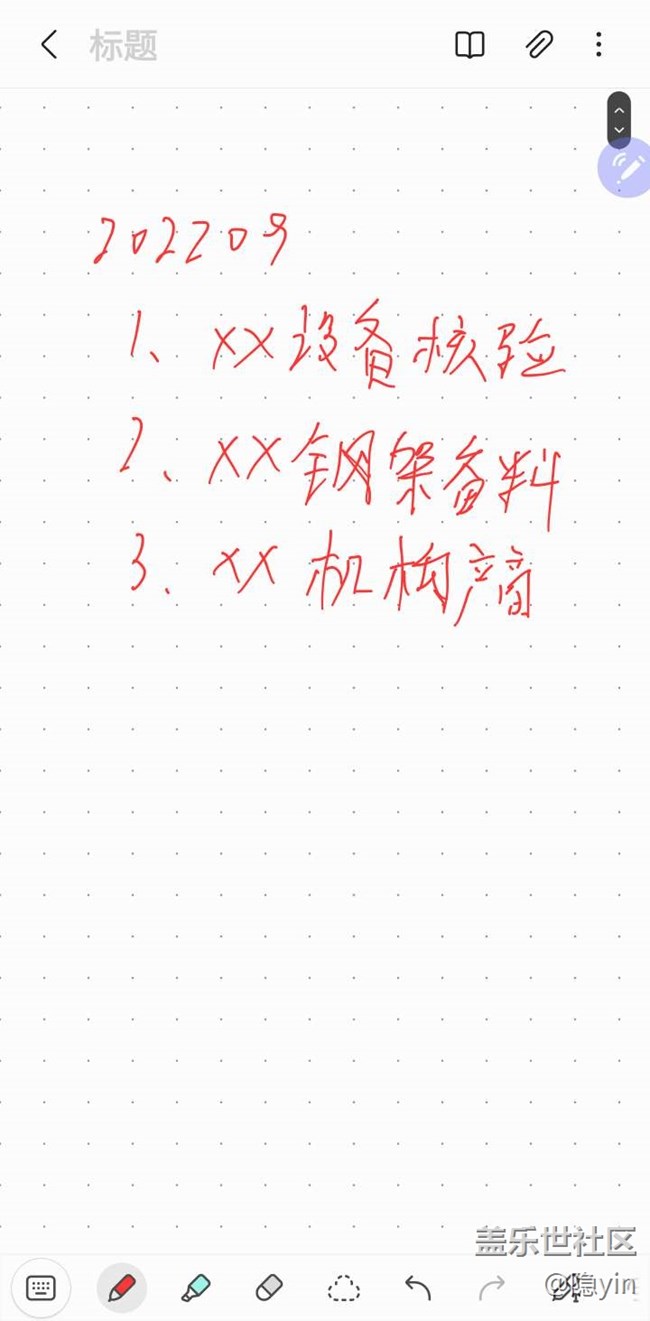 标题
202209
1、XX设备核验
2、XX钢架备料
3、XX机构产商
盖乐世社区
@隐yin